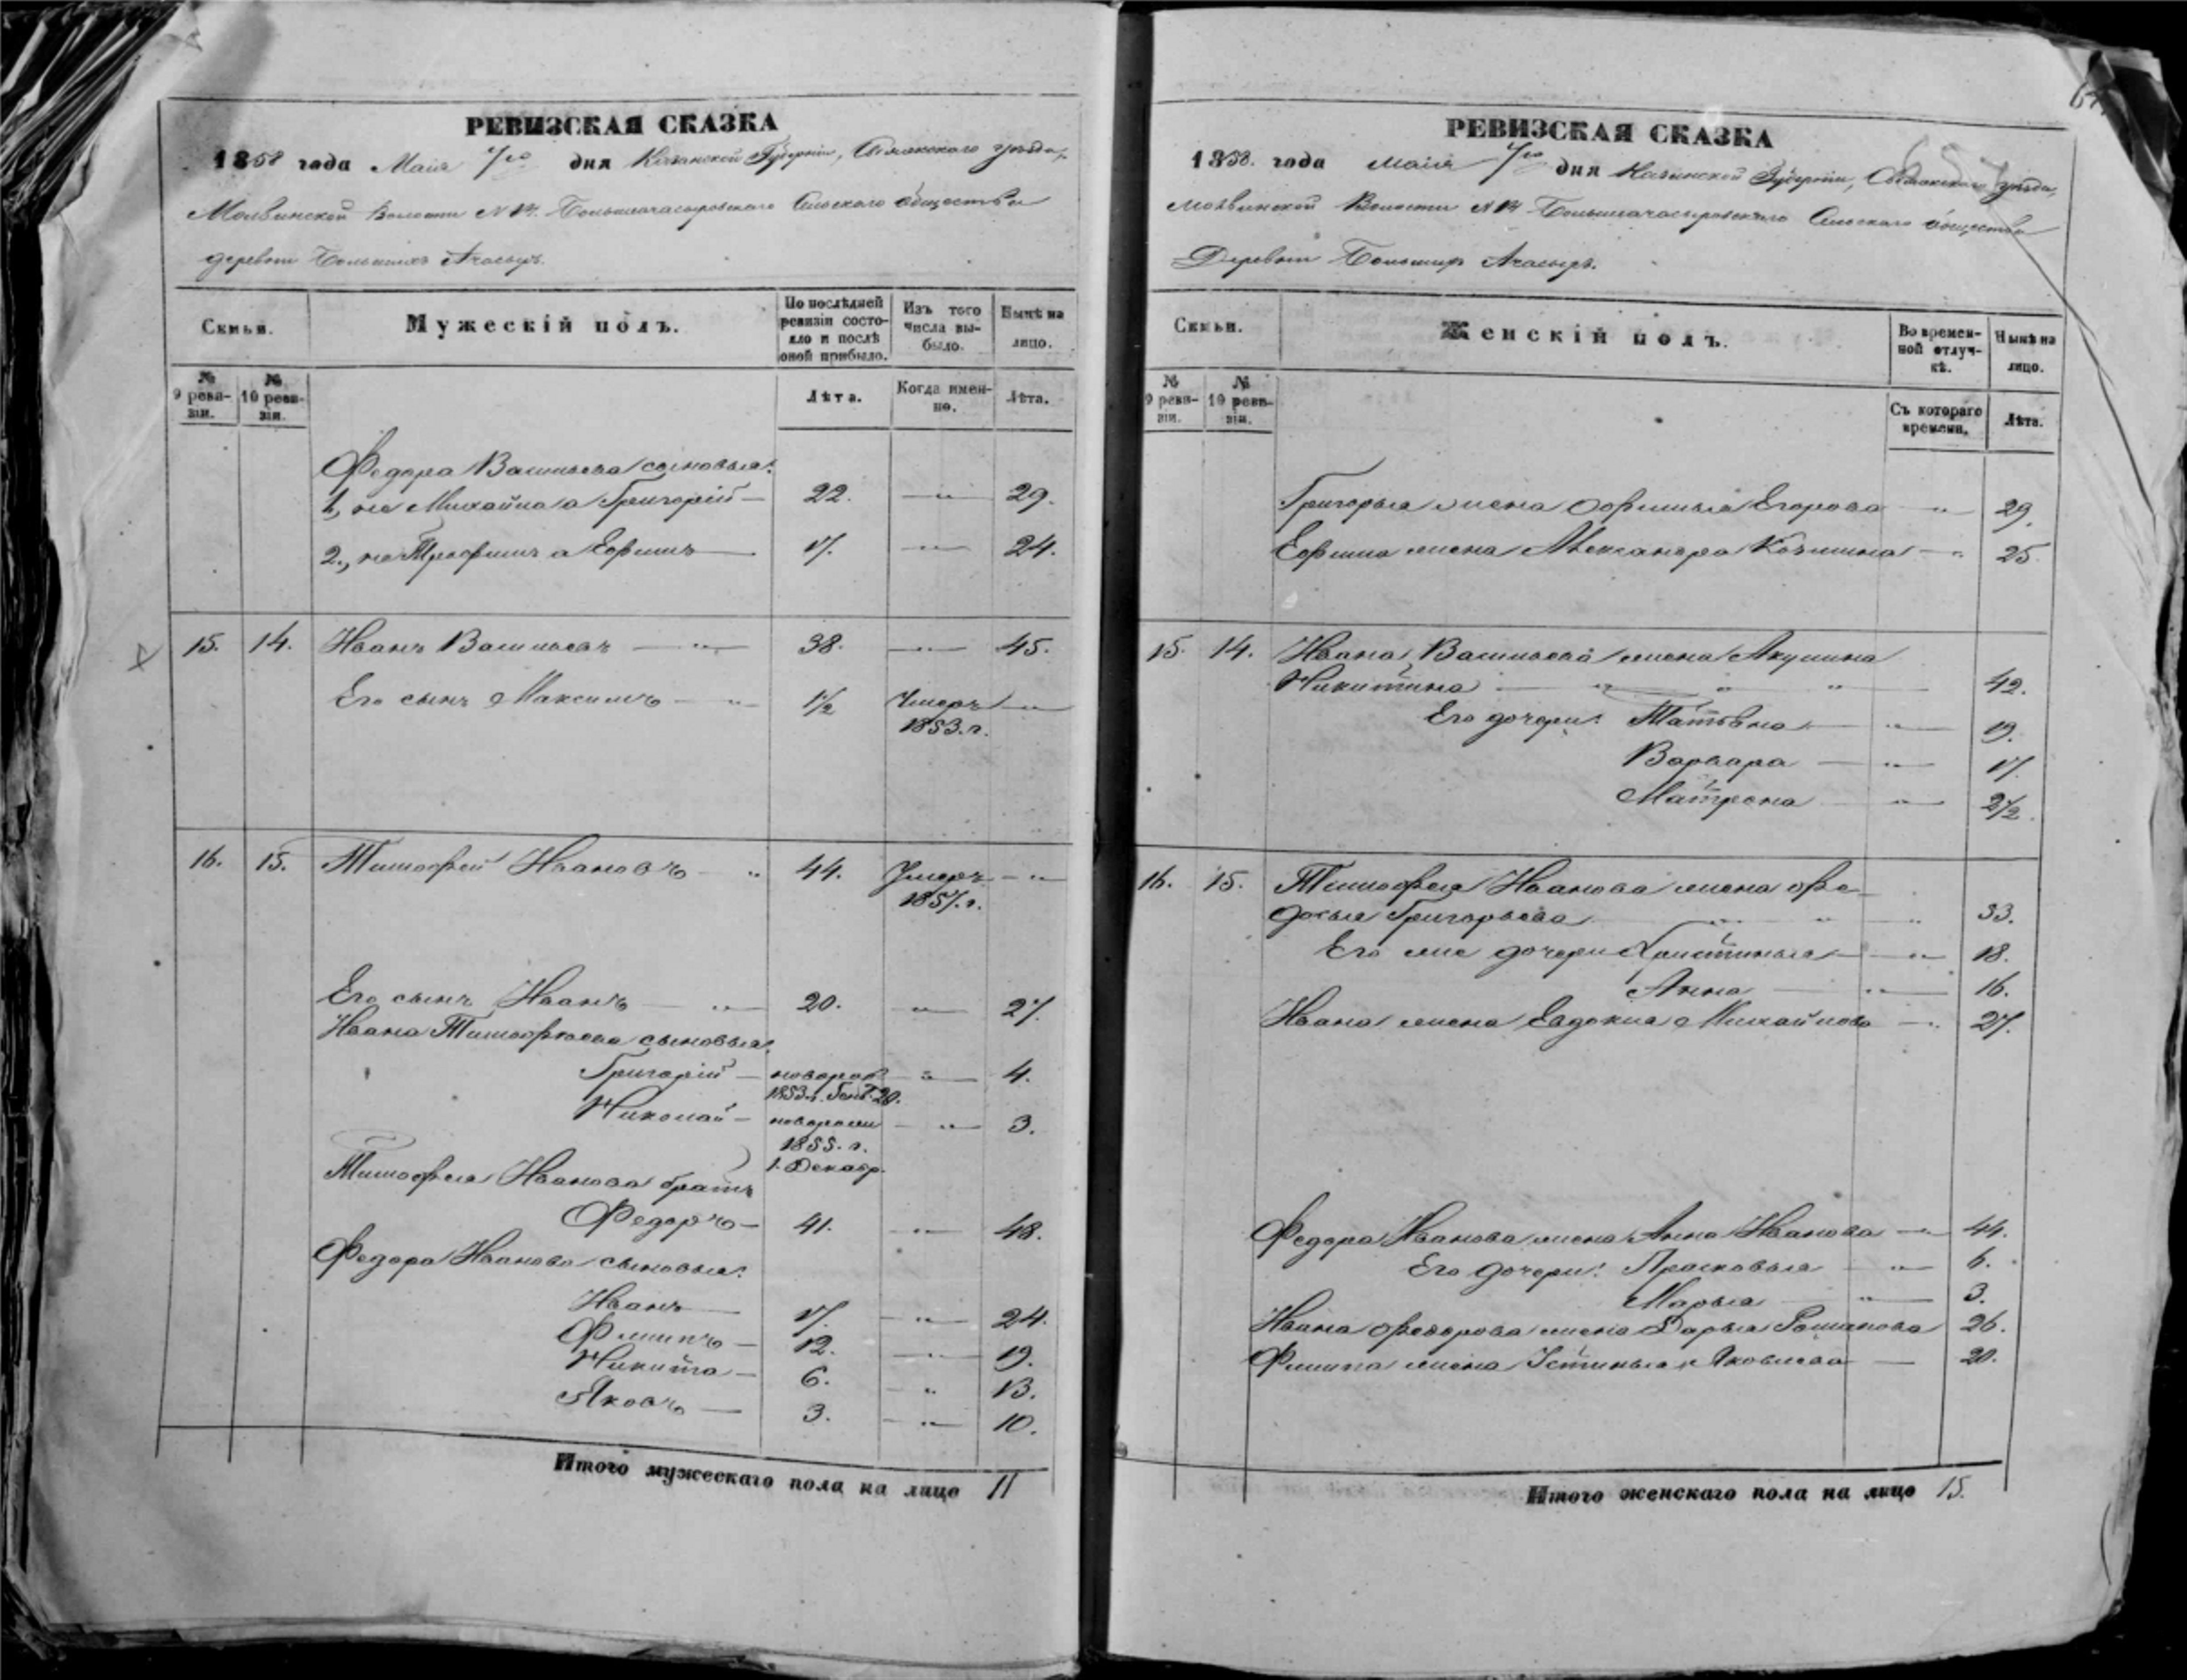 РЕВИЗСКАЯ СКАЗКА
1858 года Маія 7го дня Казанской Губерніи, Свіяжскаго уѣзда,
Молвинской Волости № 14. Большеачасырскаго Сельскаго общества
деревни Большихъ Ачасыръ.
Семьи. Мужескій полъ. По послѣдней ревизіи состояло и послѣ оной прибыло. Изъ того числа выбыло. Нынѣ на лицо.
№ 9 ревизіи. № 10 ревизіи. Лѣта. Когда именно. Лѣта.
Федора Васильева сыновья:
1, не Михайла а Григорій — 22. — " — 29.
2., не Трофимъ а Ефимъ — 17. — " — 24.
15. 14. Иванъ Васильевъ — " — 38. — " — 45.
Его сынъ Максимъ — " 1½ Умеръ — " —
1853. г.
16. 15. Тимофей Ивановъ — " 44. Умеръ — " —
1857. г.
Его сынъ Иванъ — " — 20. — " — 27.
Ивана Тимофеева сыновья:
Григорій — новорож — " — 4.
1853. г. Сент. 20.
Николай — новорож — " — 3.
1855. г.
1. Декабр.
Тимофея Иванова братъ
Федоръ — 41. — " — 48.
Федора Иванова сыновья:
Иванъ — 17. — " — 24.
Филипъ — 12. — " — 19.
Никита — 6. — " 13.
Яковъ — 3. — " — 10.
Итого мужескаго пола на лицо 11
РЕВИЗСКАЯ СКАЗКА
1858. года Маія 7го дня Казанской Губерніи, Свіяжскаго уѣзда,
Молвинской Волости № 14 Большеачасырскаго Сельскаго общества
Деревни Большихъ Ачасыръ.
Семьи. Женскій полъ. Во временной отлучкѣ. Нынѣ на лицо.
№ 9 ревизіи. № 10 ревизіи. Съ котораго времени. Лѣта.
Григорья жена Офимья Егорова — " — 29.
Ефима жена Александра Козмина — " 25
15. 14. Ивана Васильева жена Акулина
Никитина — " " " — 42.
Его дочери: Татьяна — " — 19.
Варвара — " — 17.
Матрена — " — 2½
16. 15. Тимофея Иванова жена Фе-
досья Григорьева " " " 53.
Его же дочери Христинья — " — 18.
Анна — " — 16.
Ивана жена Евдокиа Михайлова — " 27.
Федора Иванова жена Анна Иванова — " — 44.
Его дочери: Прасковья — " — 6.
Марья — " — 3.
Ивана Федорова жена Дарья Романова 26.
Филипа жена Устинья Яковлева — 20.
Итого женскаго пола на лицо 15.